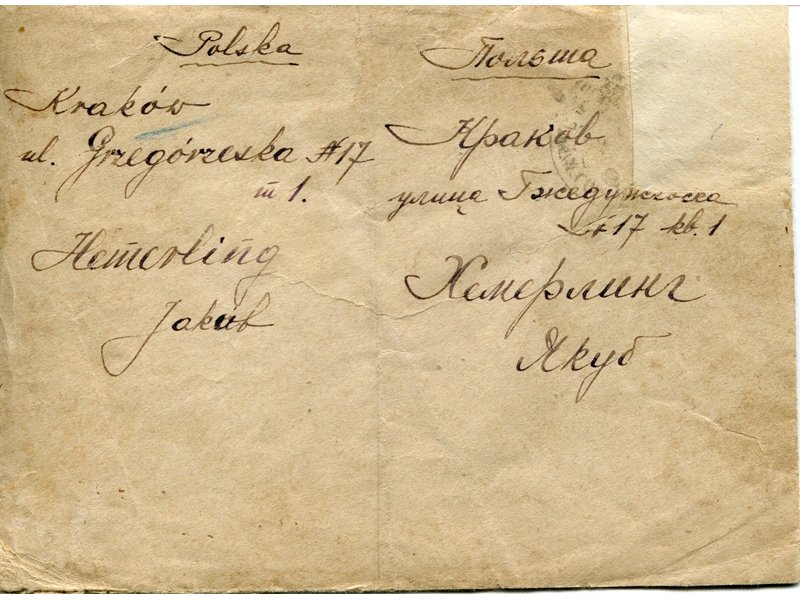 Polska
Kraków
ul. Grzegórzeska №17
m 1.
Hemerling
Jakub
Польша
Краков
улица Гжегужэска
№17 кв. 1
Хемерлинг
Якуб